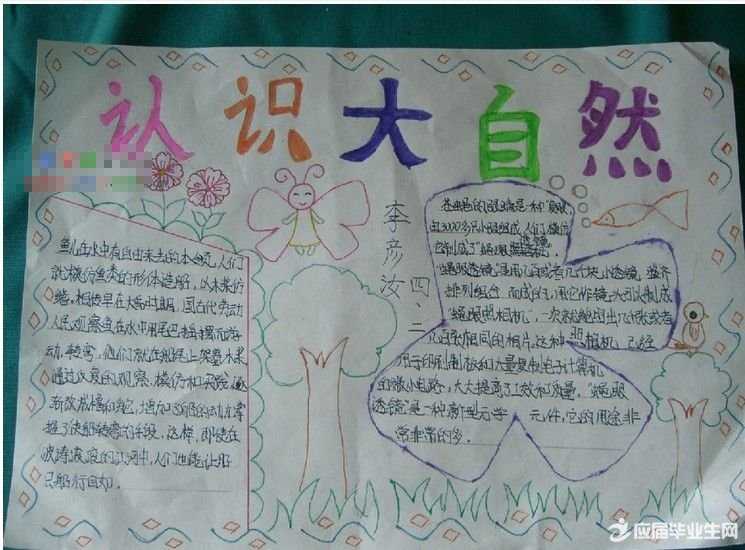 认识大自然
鱼儿在水中有自由来去的本领,人们
就模仿鱼类的形体造船,以木桨仿
鳍。相传早在大禹时期,我国古代劳动
人民观察鱼在水中用尾巴摇摆而游
动、转弯,他们就在船尾上架置木桨
通过反复的观察、模仿和实践,逐
渐改成橹和舵,增加了船的动力,掌
握了使船转弯的手段。这样,即使在
波涛滚滚的江河中,人们也能让船
只航行自如。
李彦汝
四、二
苍蝇的眼睛是一种"复眼"
由3000多只小眼组成,人们模仿
它制成了"蝇眼透镜"。
"蝇眼透镜"是用几百或者几千块小透镜整齐
排列组合而成的,用它作镜头可以制成
"蝇眼照相机",一次就能照出几千张或者
几百张相同的相片。这种照相机已经
用于印刷制板和大量复制电子计算机
的微小电路,大大提高了工效和质量。"蝇眼
透镜"是一种新型光学元件,它的用途非
常非常的多。
应届毕业生网